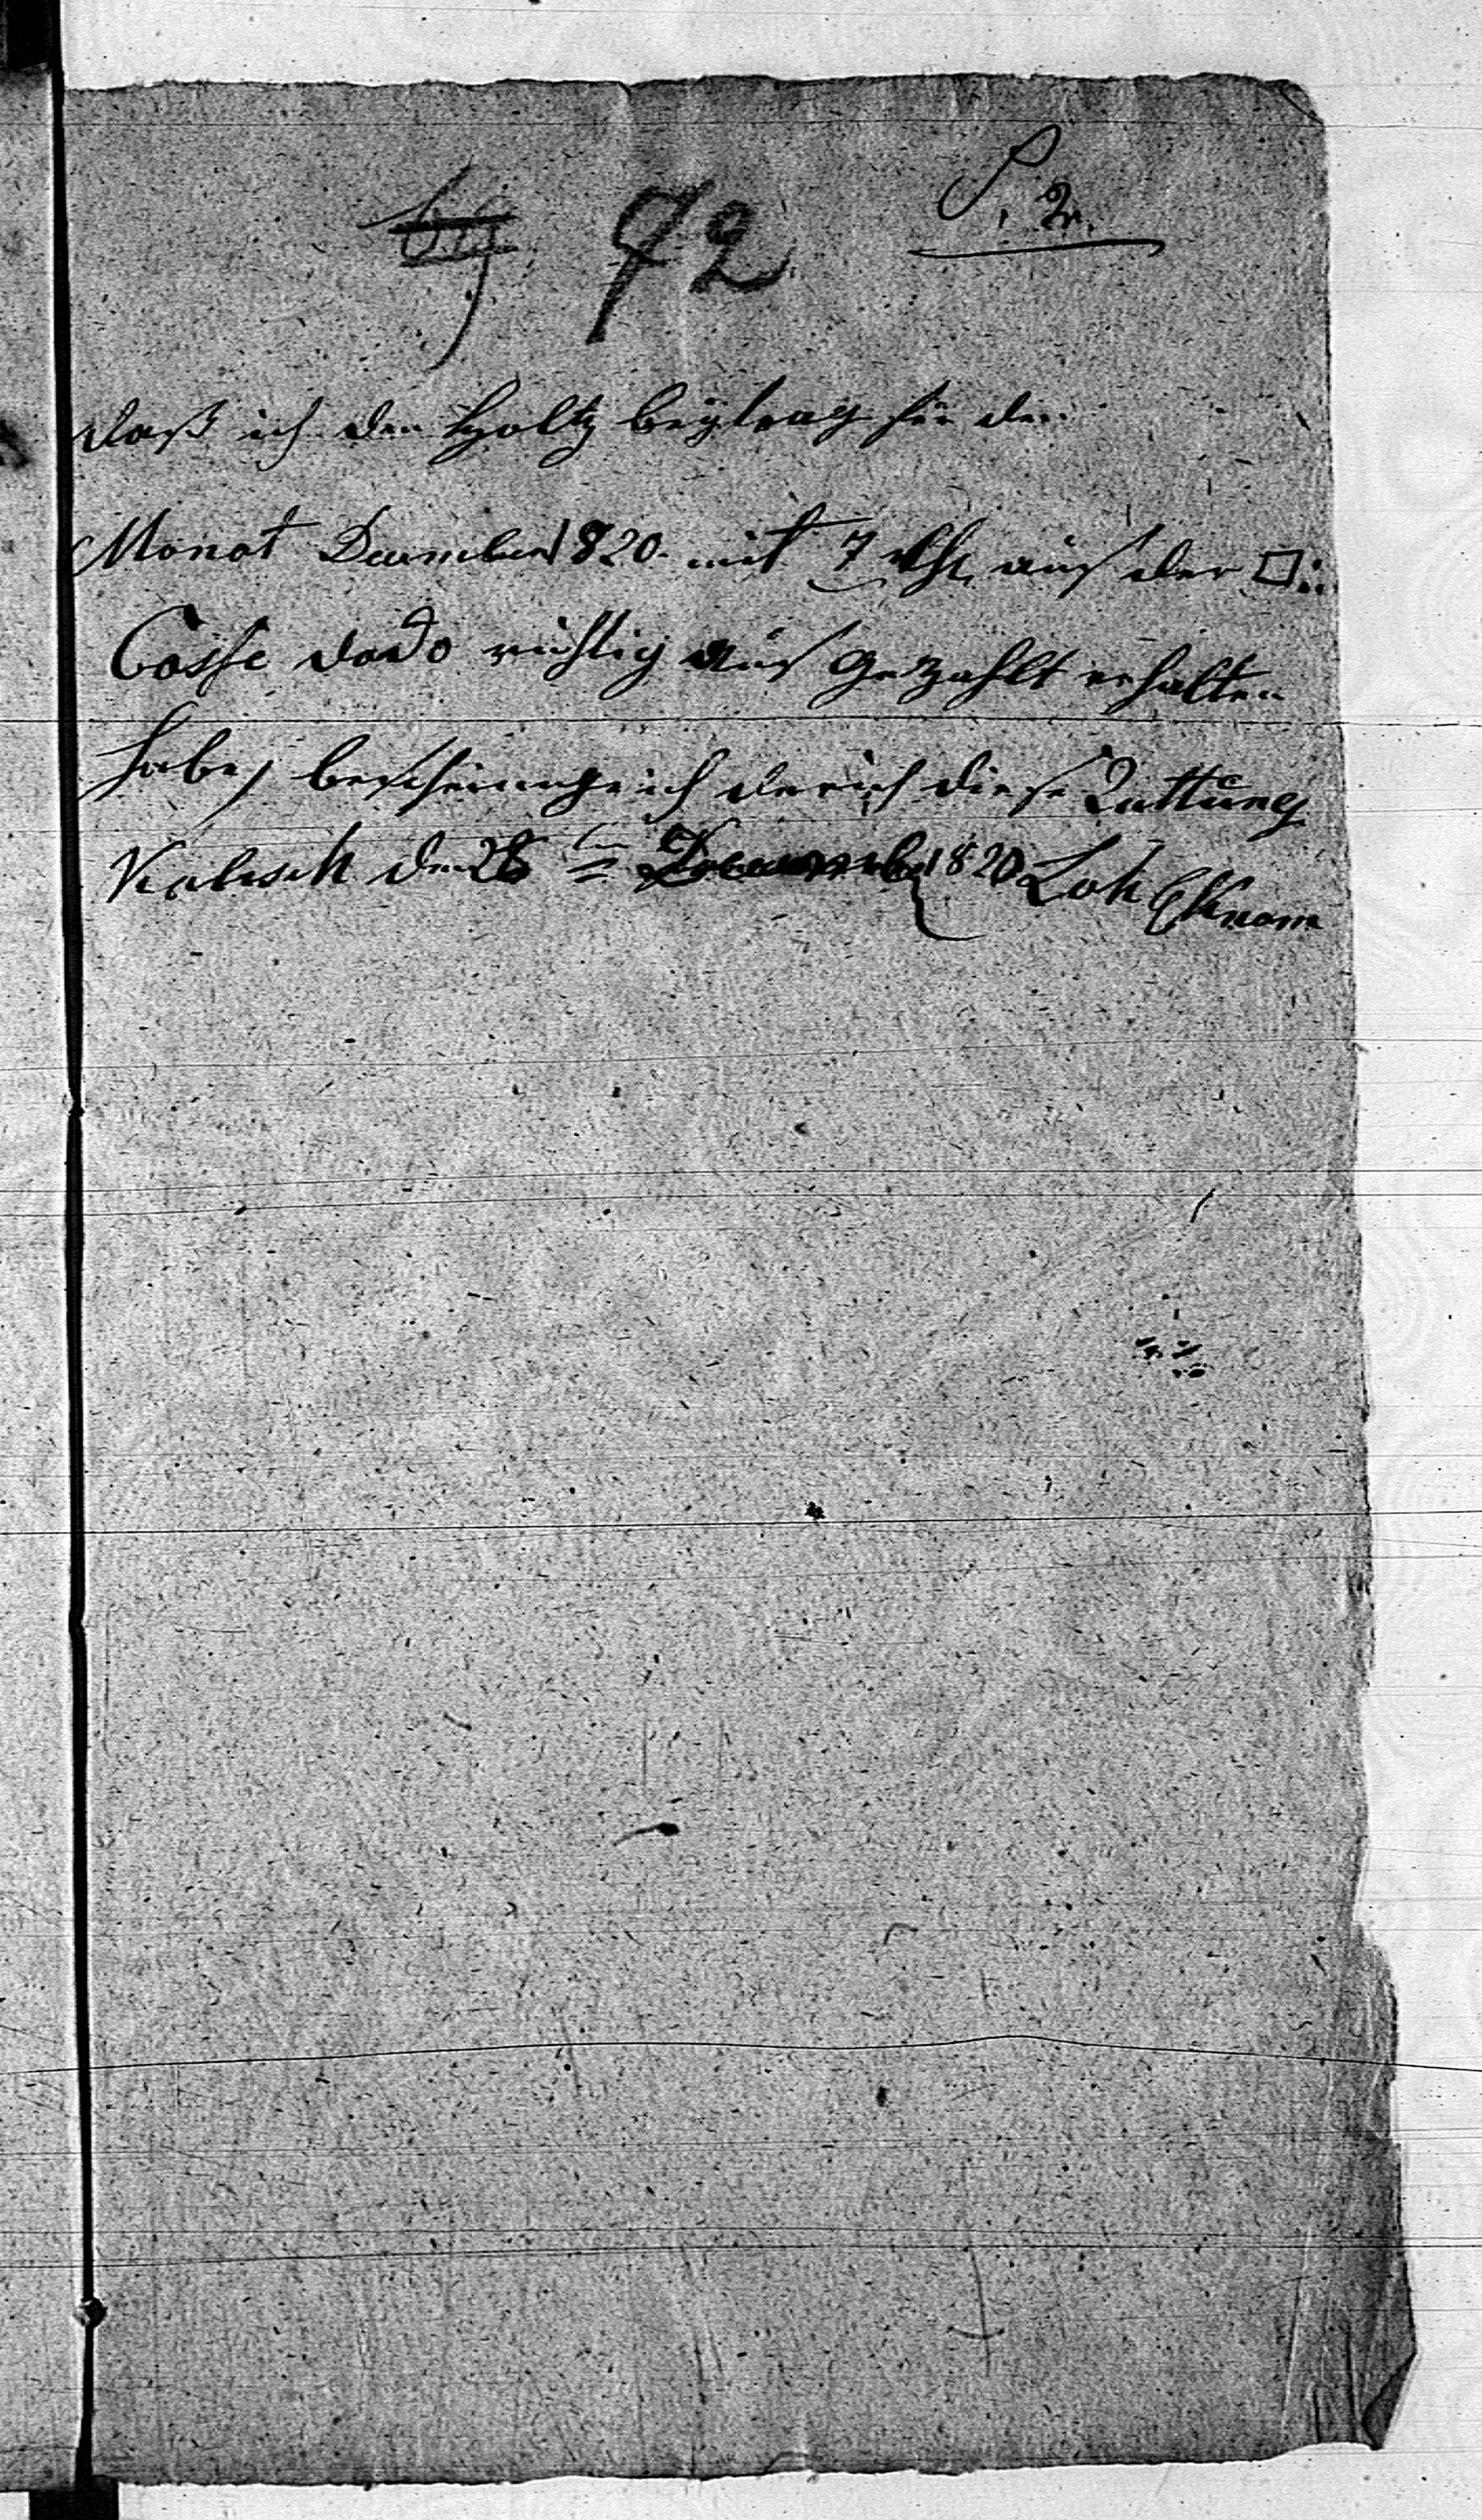 72 P. 2.
daß ich den Holtz beÿtrag für den
Monat December 1820. mit 7 rthl aus der □:
Casse dado richtig aus gezahlt erhalten
habe, bescheinnge ich durich diese Quttung
Kalisch den 28 ten December 1820